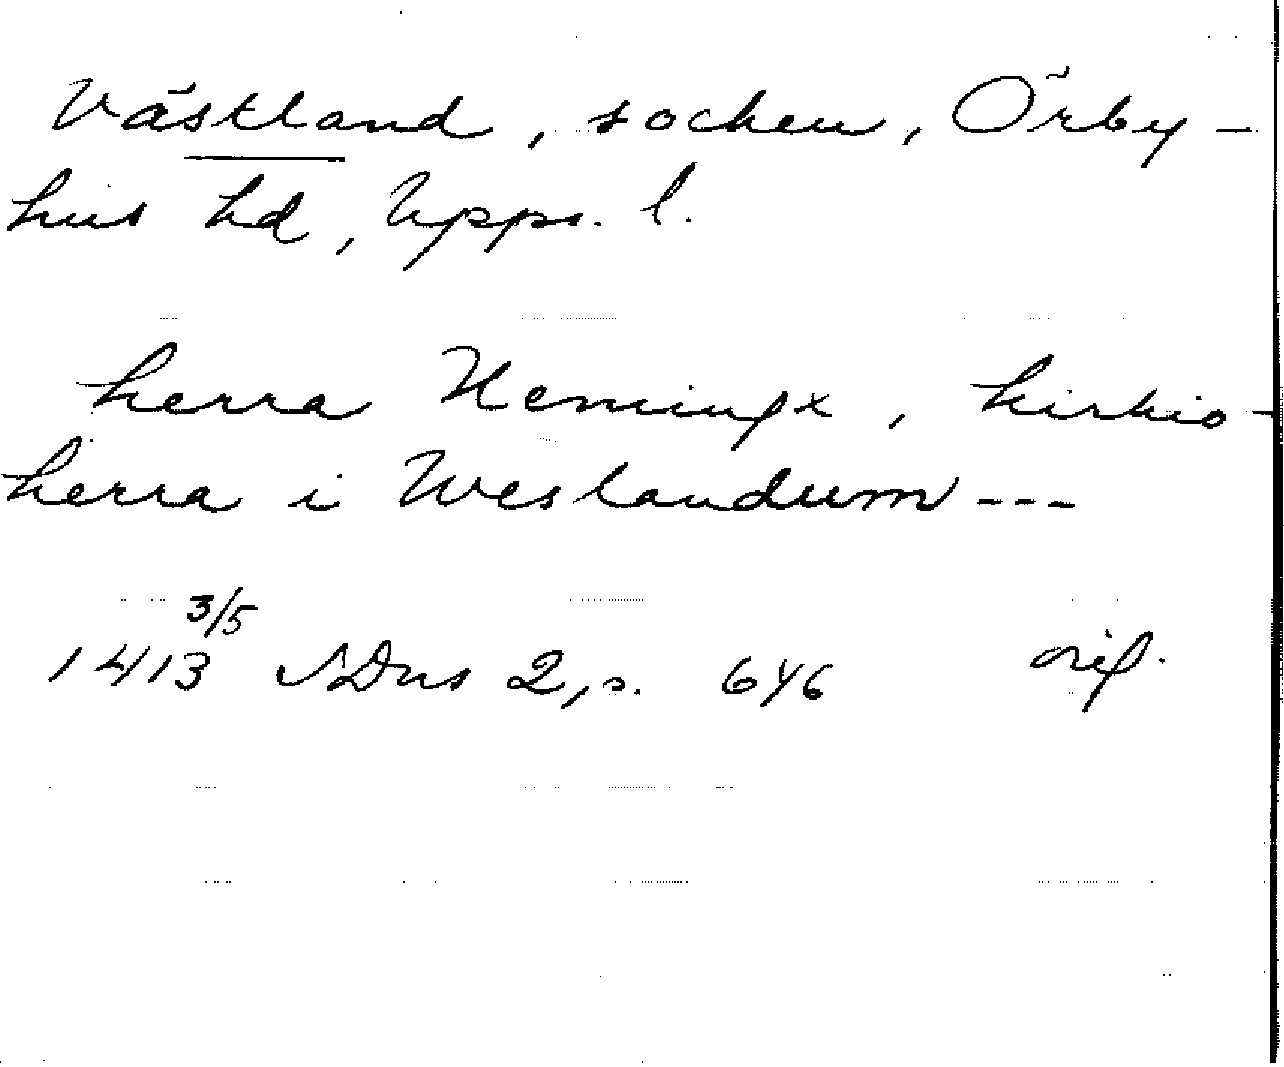 Västland, socken, Örby-
hus hd, Upps. l.
herra Hemingx, kirkio-
herra i Weslandum ---
3/5
1413 SDns 2, s. 646 orig.